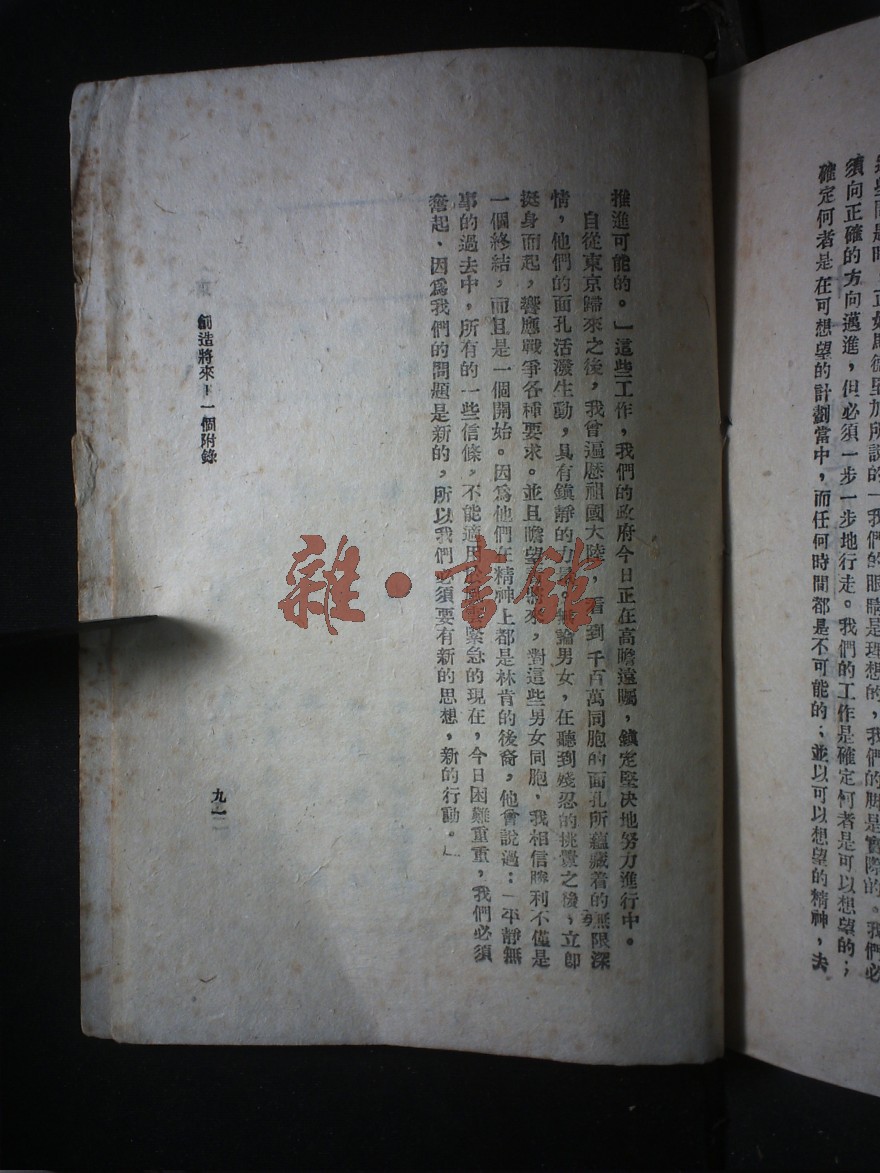 須向正確的方向邁進，但必須一步一步地行走。我們的工作是確定何者是可以想望的；
確定何者是在可想望的計劃當中，而任何時間都是不可能的；並以可以想望的精神，去
推進可能的。」這些工作，我們的政府今日正在高瞻遠矚，鎮定堅決地努力進行中。
自從東京歸來之後，我曾遍歷祖國大陸，看到千百萬同胞的面孔所蘊藏着的無限深
情，他們的面孔活潑生動，具有鎮靜的力量。無論男女，在聽到殘忍的挑釁之後，立卽
挺身而起，響應戰爭各種要求。並且瞻望着將來，對這些男女同胞，我相信勝利不僅是
一個終結，而且是一個開始。因爲他們在精神上都是林肯的後裔，他曾說過：「平靜無
事的過去中，所有的一些信條，不能適用 緊急的現在，今日困難重重，我們必須
奮起，因爲我們的問題是新的，所以我們必須要有新的思想，新的行動。」
創造將來——一個附錄
九一
雜·書館